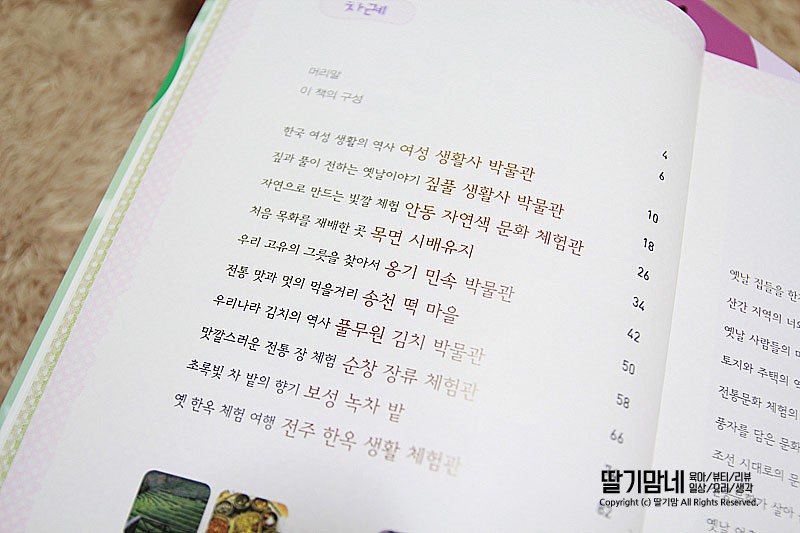 차례
머리말
이 책의 구성
4
6
한국 여성 생활의 역사 여성 생활사 박물관
10
짚과 풀이 전하는 옛날이야기 짚풀 생활사 박물관
18
자연으로 만드는 빛깔 체험 안동 자연색 문화 체험관
26
처음 목화를 재배한 곳 목면 시배유지
34
우리 고유의 그릇을 찾아서 옹기 민속 박물관
42
전통 맛과 멋의 먹을거리 송천 떡 마을
50
우리나라 김치의 역사 풀무원 김치 박물관
58
맛깔스러운 전통 장 체험 순창 장류 체험관
66
초록빛 차 밭의 향기 보성 녹차 밭
옛 한옥 체험 여행 전주 한옥 생활 체험관
82
옛날 집들을 한
산간 지역의 너와
옛날 사람들의
토지와 주택의 역
전통문화 체험의
풍자를 담은 문화
조선 시대로의 문
살아
옛날
딸기맘네 육아/뷰티/리뷰
일상/요리/생각
Copyright (c) 딸기맘 All Rights Reserved.